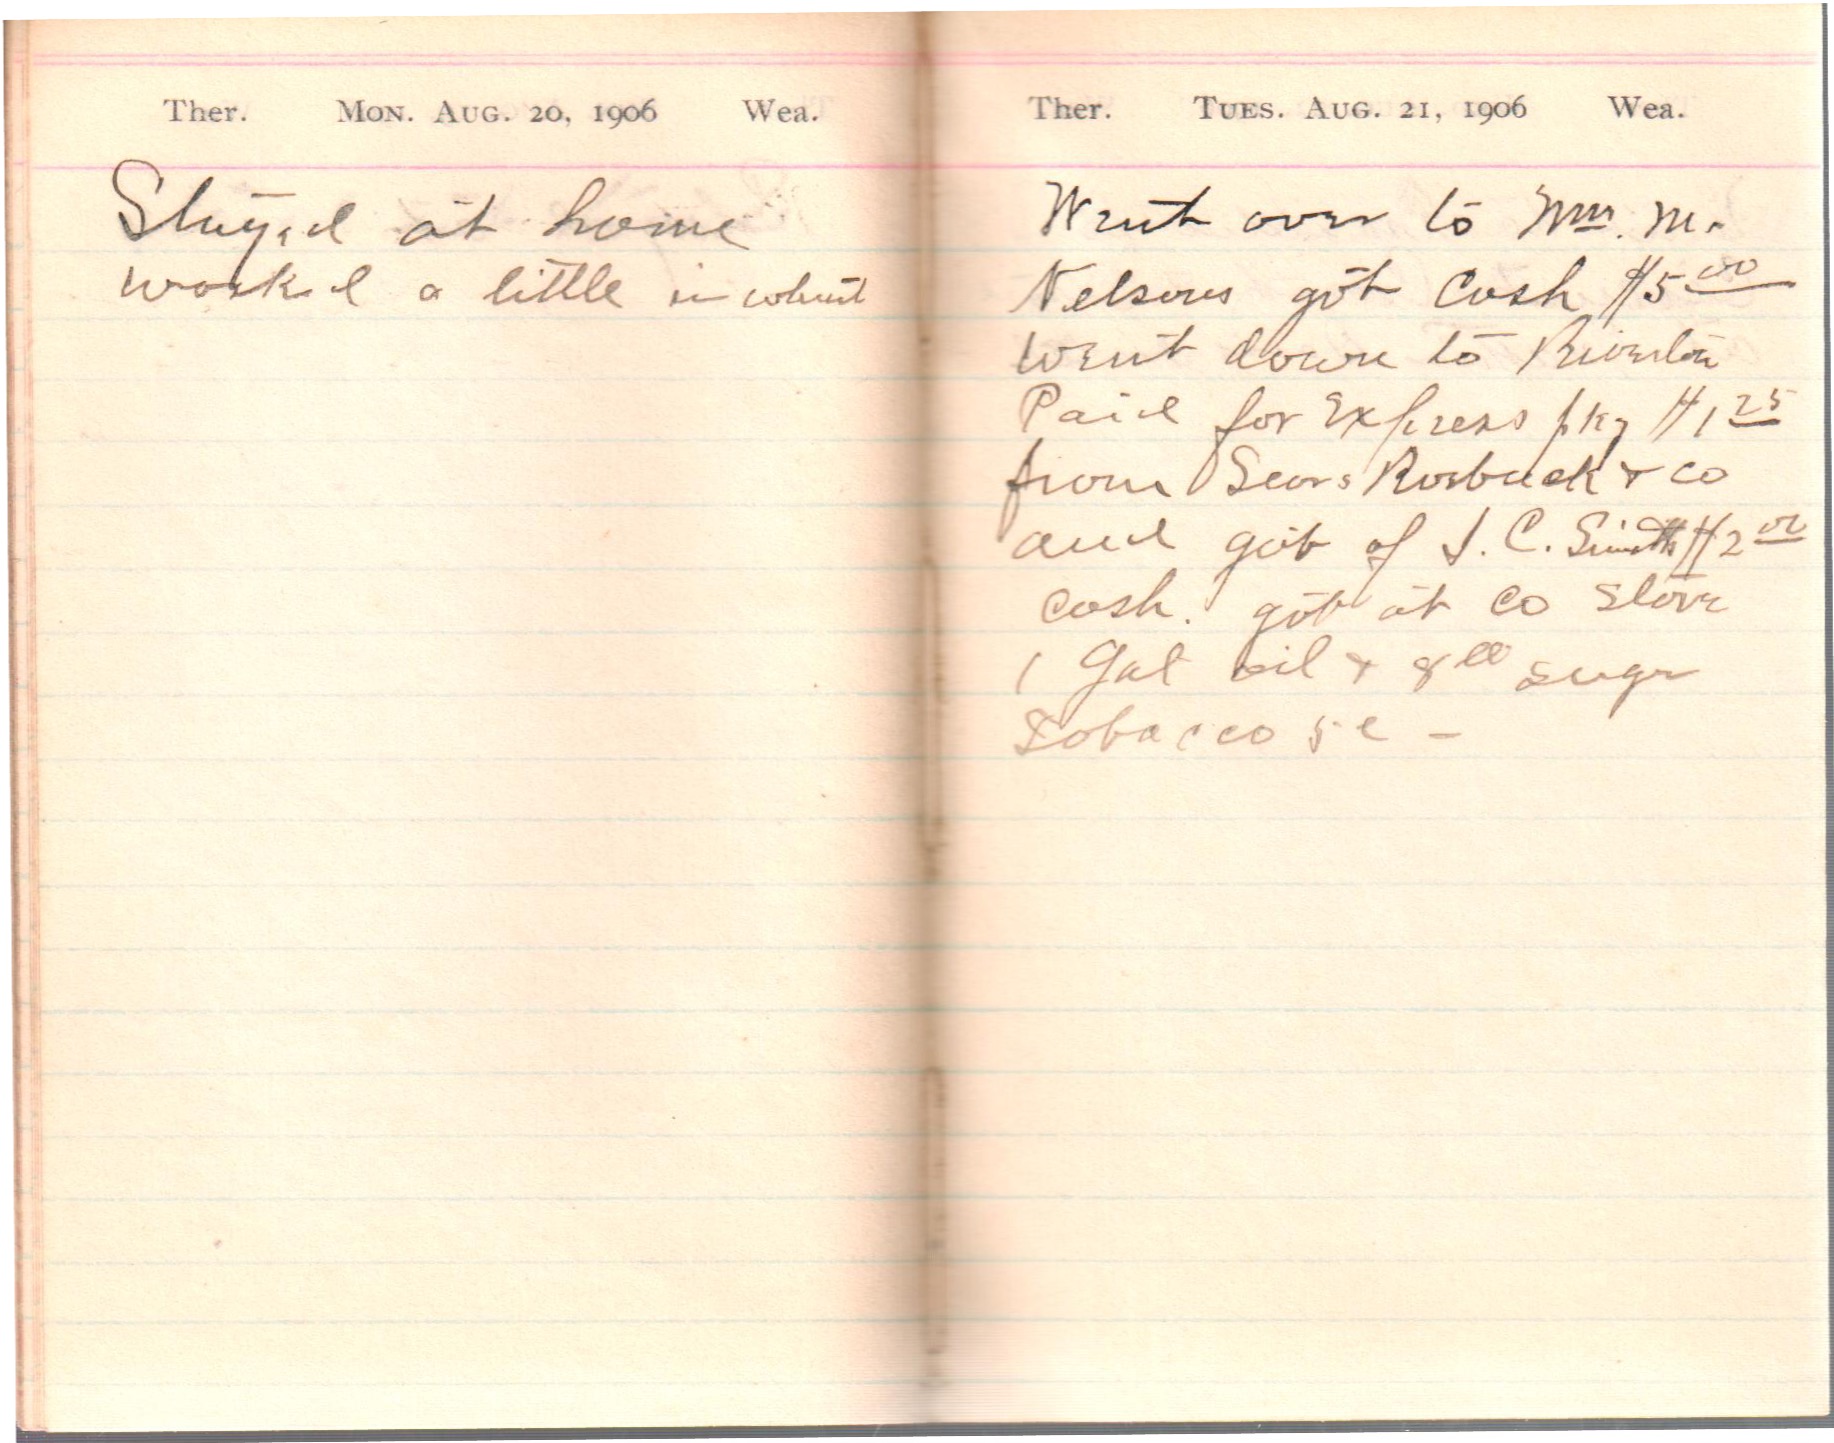 Ther. MON. AUG. 20, 1906 Wea.
Stayed at home
worked a little in wheat
Ther. TUES. AUG. 21, 1906 Wea.
Went over to Wm. M.
Nelsons got Cash $5 00
went down to Riverton
Paid for Express pkg $1 25
from Sears Roebuck & co
and got of J. C. Smith $2 00
cash. got at co store
1 Gal oil & sugr
Tobacco 5 c –